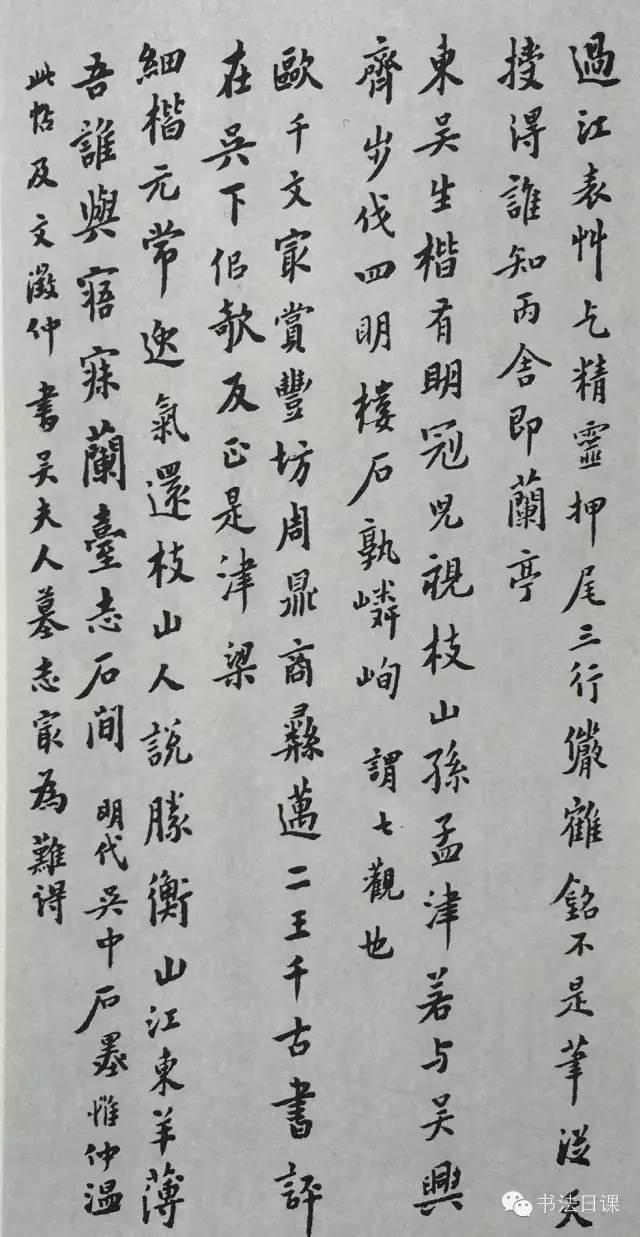 過江表艸乞精靈押尾三行儼寉銘不是筆從天
授得誰知丙舍即蘭亭
東吴生楷有明冠兒視枝山孫孟津若与吴興
齊步伐四明樓石孰嶙峋 謂七觀也
歐千文宷賞豐坊周鼎商彝邁二王千古書評
在吴下佀欹反正是津梁
細楷元常逸氣還枝山人說勝衡山江東羊薄
吾誰與寤寐蘭臺志石間 明代吴中石墨惟仲温
此帖及文徵仲書吴夫人墓志宷為難得
书法日课